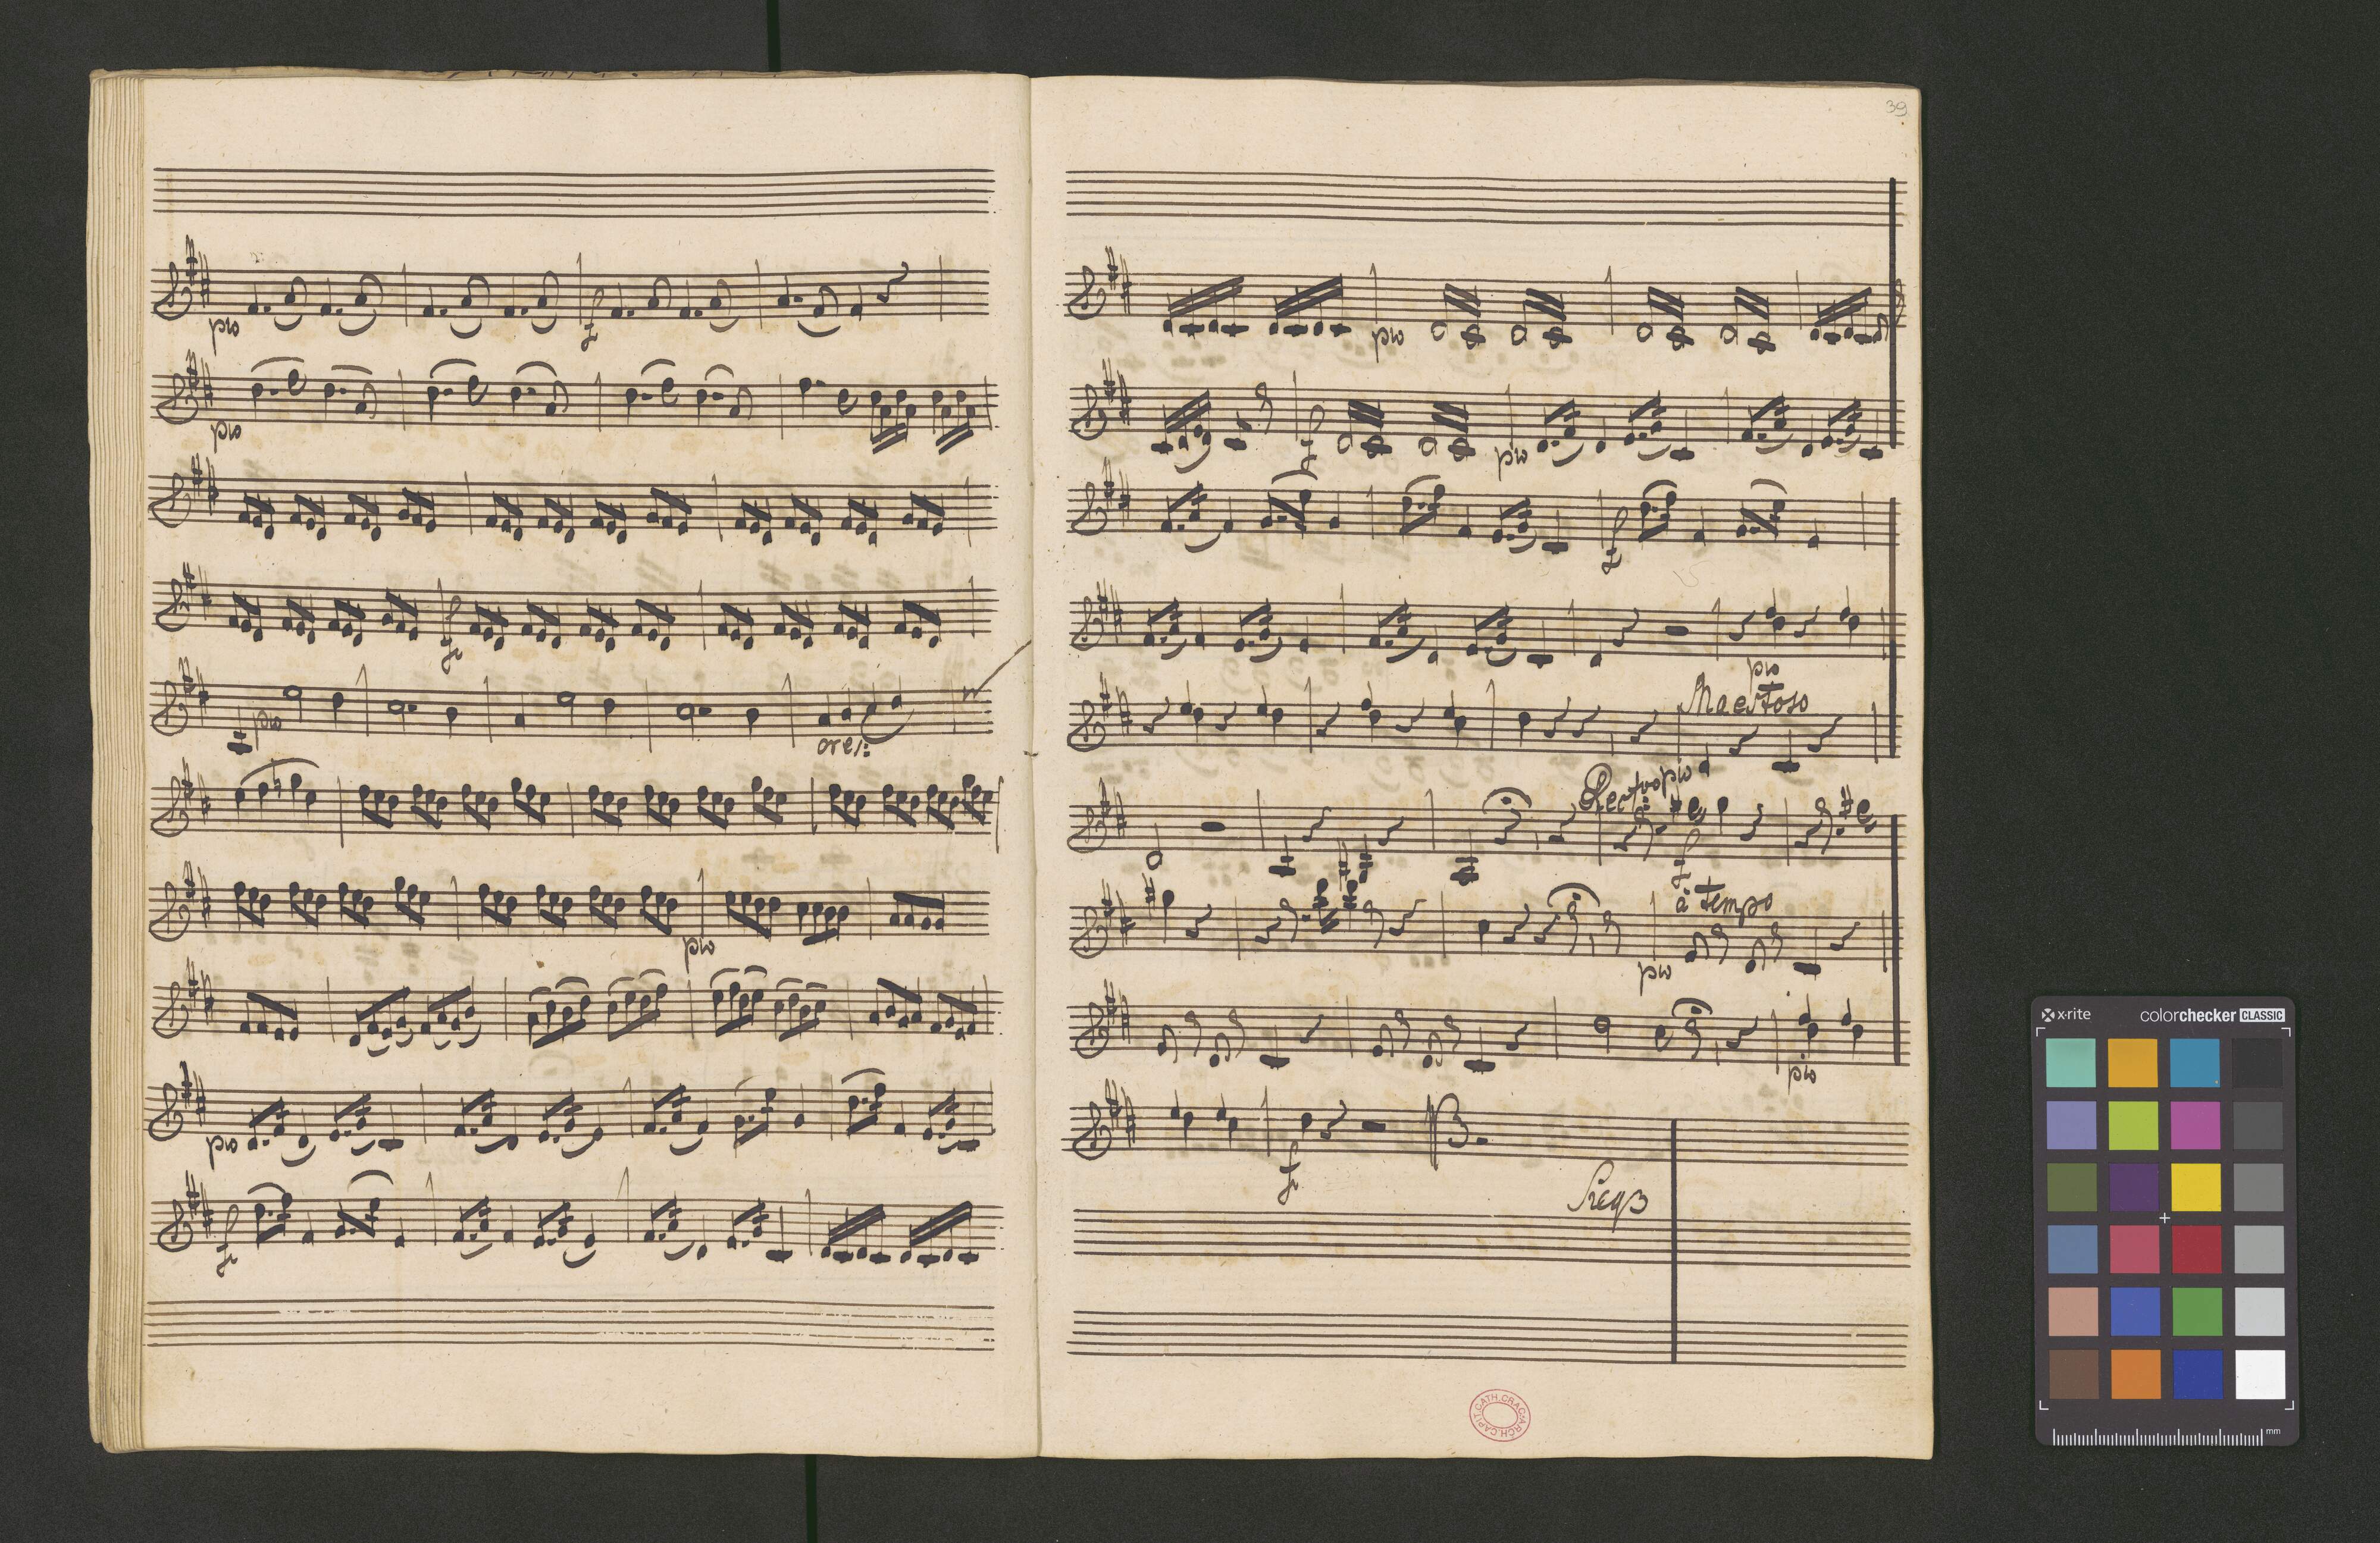 pio
f
pio
f
pio
cres:
pio
pio
f
39
pio
f
pio
f
pio
Maestoso
pio
f
à tempo
pio
pio
f
Sieg
ARCH.CAPIT.CATH.CRAC.
x-rite
colorchecker CLASSIC
mm